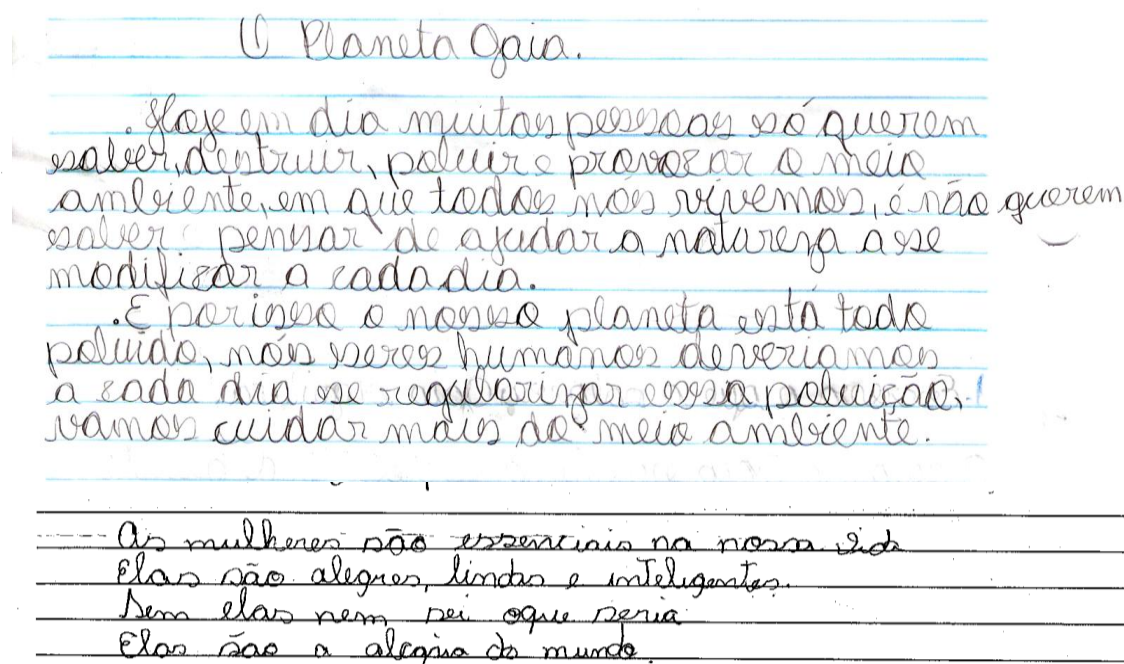 O Planeta Gaia.
. Hoje em dia muitas pessoas só querem
saber, destruir, poluir e provocar o meio
ambiente, em que todos nós vivemos, é não querem
saber pensar de ajudar a natureza a se
modificar a cada dia.
. E por isso o nosso planeta está todo
poluido, nós seres humanos deveriamos
a cada dia se regularizar essa poluição,
vamos cuidar mais do meio ambiente.
As mulheres são essenciais na nossa vida
Elas são alegres, lindas e inteligentes.
Sem elas nem sei oque seria
Elas são a alegria do mundo.